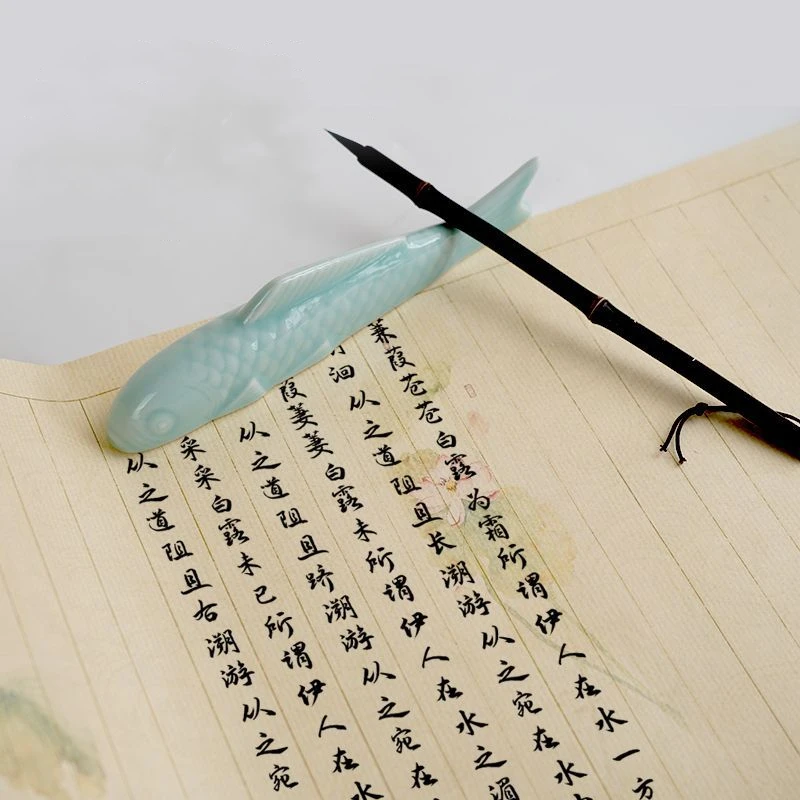 蒹葭苍苍白露为霜所谓伊人在水一方
洄从之道阻且长溯游从之宛在水
葭萋萋白露未所谓伊人在水之湄
从之道阻且跻溯游从之宛在
采采白露未已所谓伊人在水
从之道阻且右溯游从之宛